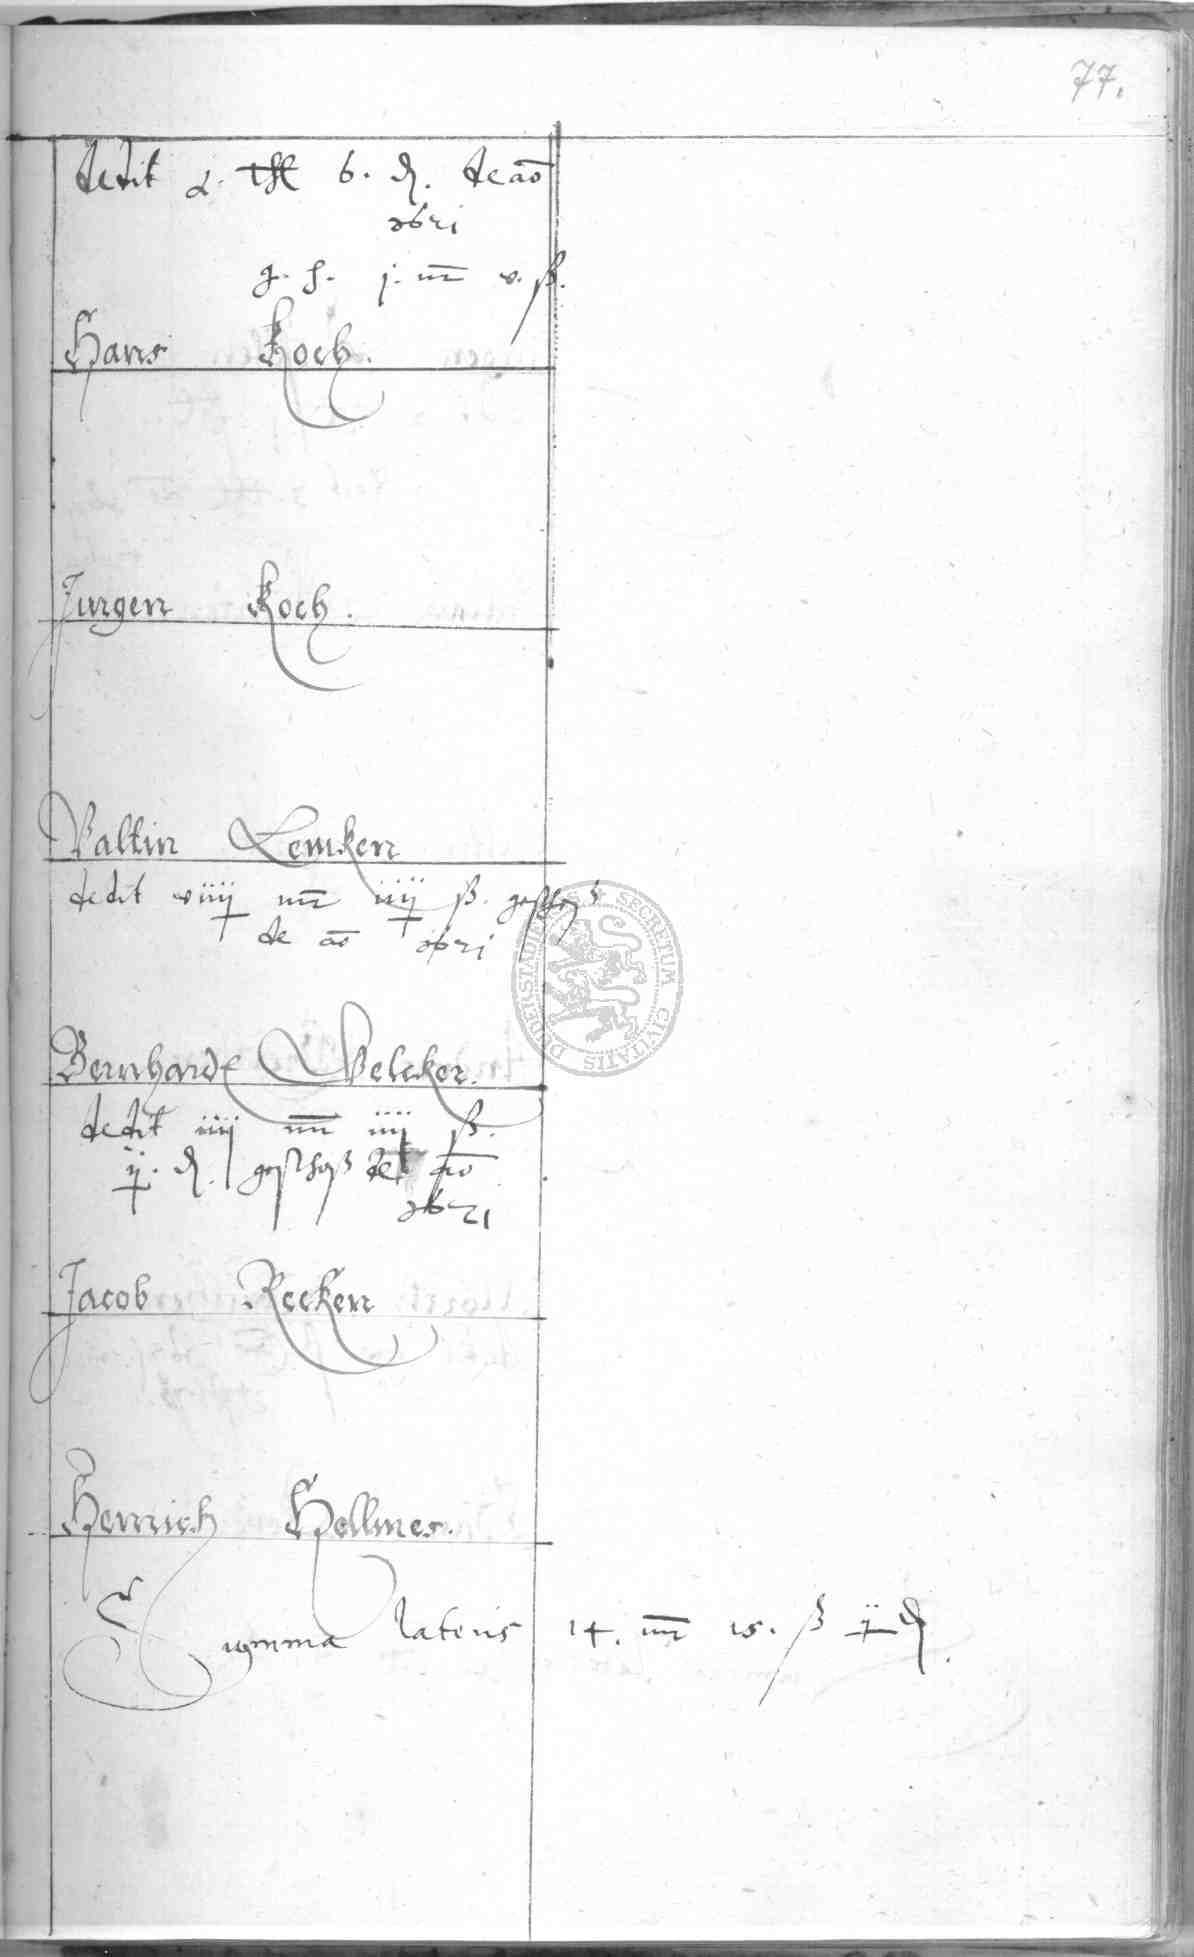 77.
dedit 2. thl 6. d. de ao
1621
g. s. j. mr v. ß.
Hans Koch.
Jurgen Koch.
Valtin Lemken
dedit viiij mr iiij ß. geschoß
de ao 1621
Bernhardt Welcker.
dedit iiij mr iiij ß.
ij. d. geschoß de ao
1621
Jacob Recken
Henrich Hellmer.
Summa lateris 14. mr 15. ß ij d.
SECRETUM CIVITATIS DUDERSTADIENSIS